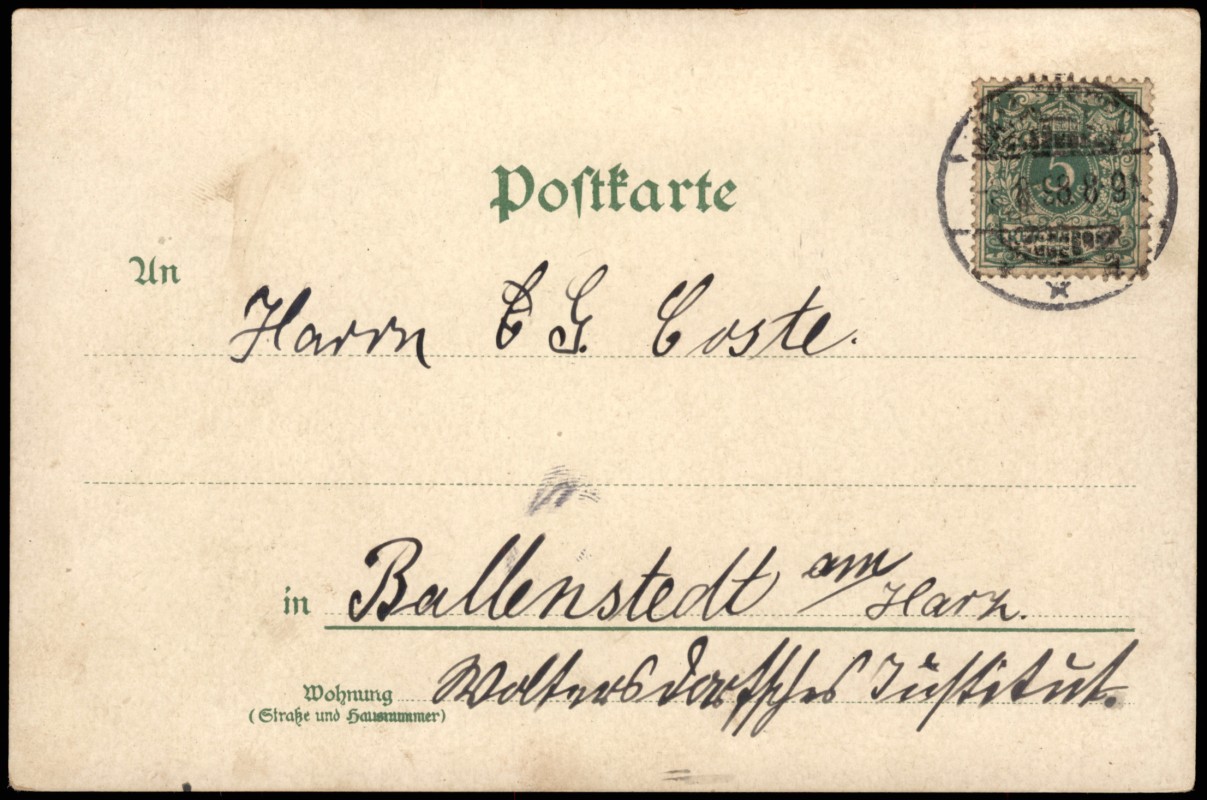 Postkarte
5
An
Herrn E G. Coste.
in Ballenstedt am Harz.
Wohnung Woltersdorffsches Institut.
(Straße und Hausnummer)